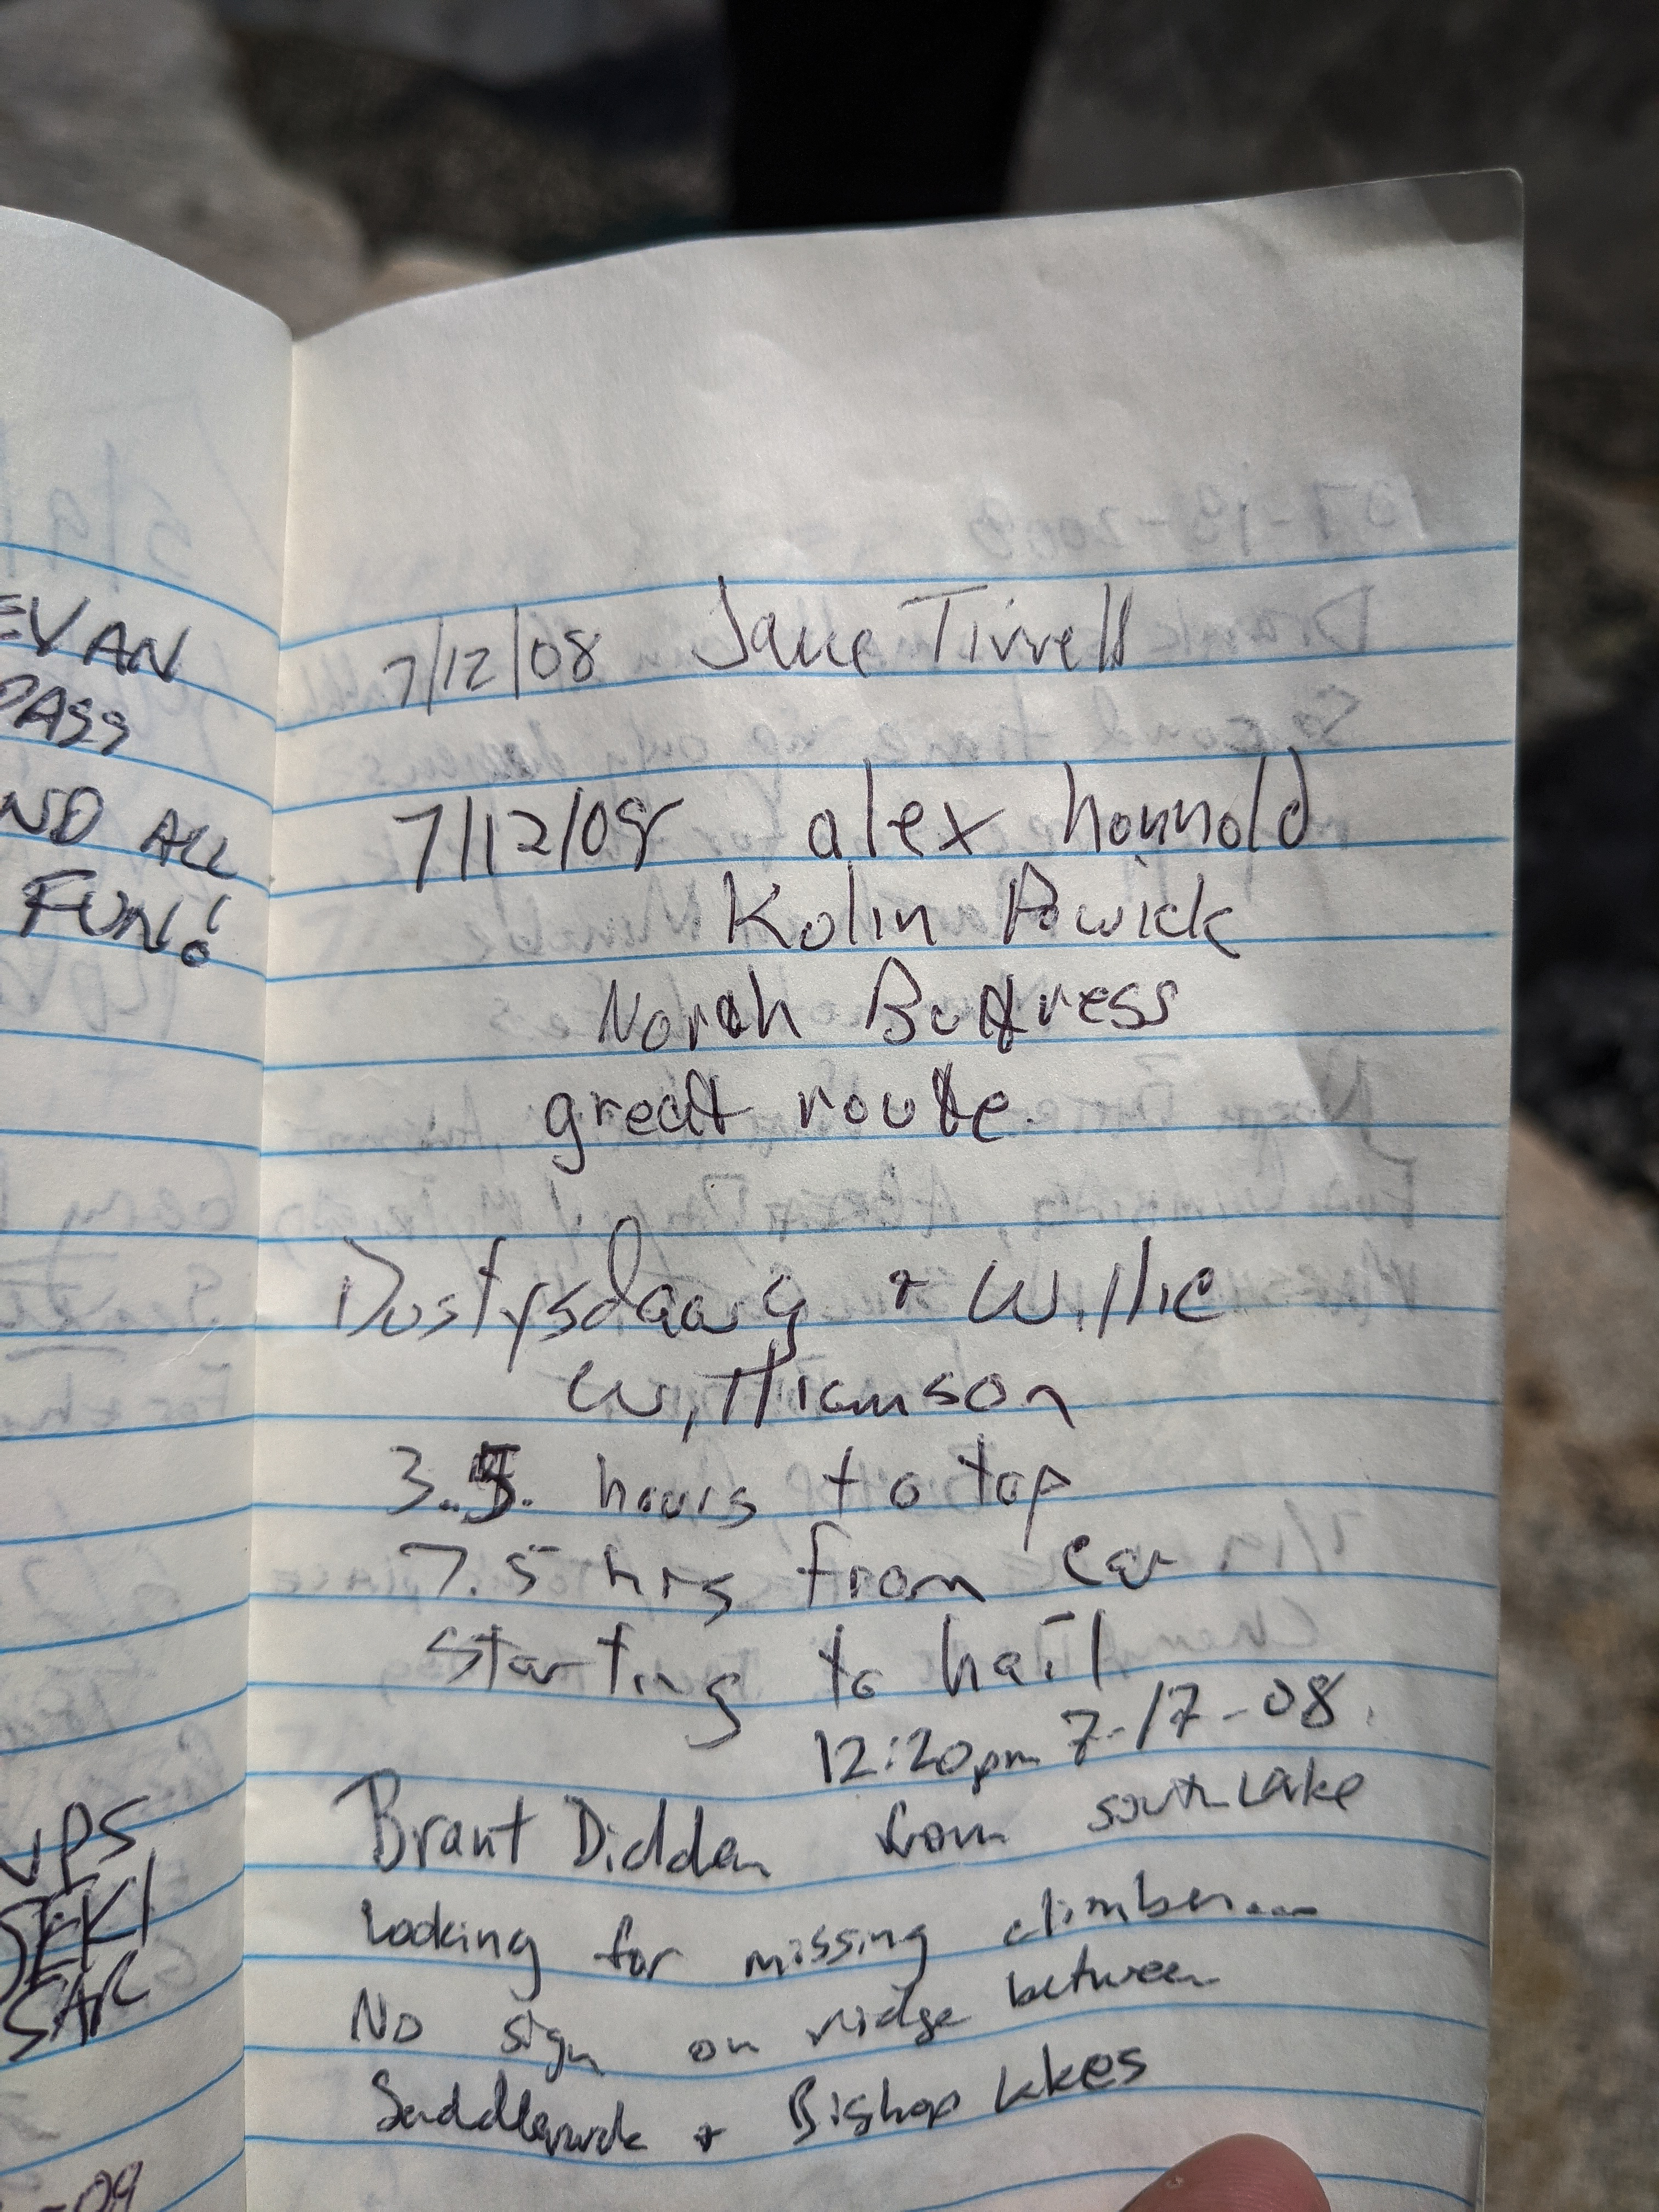 EVAN
PASS
ALL
FUN!
UPS
SEKI
SAR
-09
7/12/08 Tirrell
7/12/08 alex honnold
Kolin Powick
North Buttress
great route.
+ Willie
Williamson
3.5 hours to top
7.5 hrs from car
starting to hail
12:20pm 7-17-08.
Brant Didden from South Lake
Looking for missing climber...
No sign on ridge between
Saddlerock + Bishop Lakes